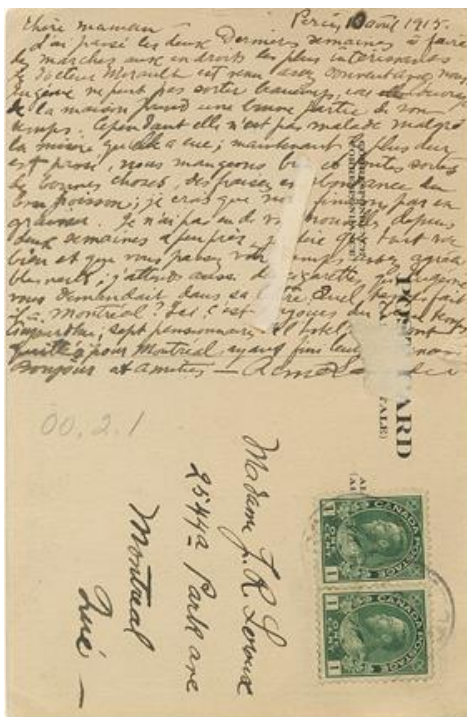 Percé, 10 août 1915.
Chère maman
J'ai passé les deux dernières semaines à faire
des marches aux endroits les plus intéressants
le docteur est venu assez souvent avec nous
Eugénie ne peut pas sortir beaucoup, car
de la maison prend une bonne partie de son
temps. Cependant elle n'est pas malade malgré
la misère qu'elle a eue; maintenant le plus dur
est passé, nous mangeons toutes sortes
de bonnes choses, des fraises en abondance du
bon poisson; je crois que nous finirons par en
Je n'ai pas eu de vos nouvelles depuis
deux semaines à peu près, j'espère que tout va
bien et que vous passez votre temps assez agréa
blement; j'attends aussi les cigarettes qu'Eugénie
vous demandait dans sa lettre. Quel temps fait
il à Montréal? Ici c'est toujours du
sept pensionnaires de l'hôtel
pour Montréal, ayant fini leur
Bonjour et amitiés —
POST CARD
00.2.1
Madam J. R. Leroux
2544a Park ave
Montreal
Qué —
CANADA POSTAGE
1 ONE CENT 1
CANADA POSTAGE
1 ONE CENT 1